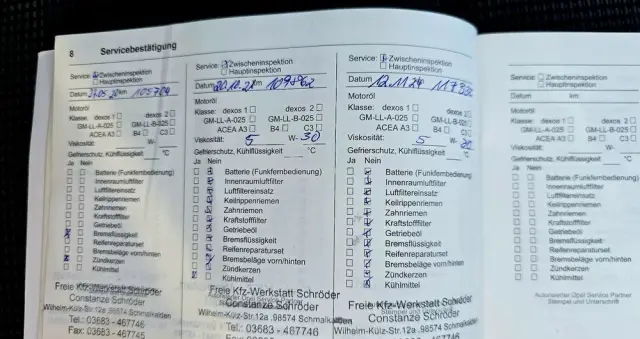 8 Servicebestätigung
Service: Zwischeninspektion
Hauptinspektion
Datum km 105704
Motoröl
Klasse: dexos 1 dexos 2
GM-LL-A-025 GM-LL-B-025
ACEA A3 B4 C3
Viskosität: W-
Gefrierschutz, Kühlflüssigkeit °C
Ja Nein
Batterie (Funkfernbedienung)
Innenraumluftfilter
Luftfiltereinsatz
Keilrippenriemen
Zahnriemen
Kraftstofffilter
Getriebeöl
Bremsflüssigkeit
Reifenreparaturset
Bremsbeläge vorn/hinten
Zündkerzen
Kühlmittel
Freie Kfz-Werkstatt Schröder
Constanze Schröder
Wilhelm-Külz-Str.12a .98574 Schmalkalden
Tel.: 03683 - 467746
Fax: 03683 - 467745
Service: Zwischeninspektion
Hauptinspektion
Datum km
Motoröl
Klasse: dexos 1 dexos 2
GM-LL-A-025 GM-LL-B-025
ACEA A3 B4 C3
Viskosität: 5 W- 30
Gefrierschutz, Kühlflüssigkeit °C
Ja Nein
Batterie (Funkfernbedienung)
Innenraumluftfilter
Luftfiltereinsatz
Keilrippenriemen
Zahnriemen
Kraftstofffilter
Getriebeöl
Bremsflüssigkeit
Reifenreparaturset
Bremsbeläge vorn/hinten
Zündkerzen
Kühlmittel
Freie Kfz-Werkstatt Schröder
Constanze Schröder
Wilhelm-Külz-Str.12a .98574 Schmalkalden
Tel.: 03683 - 467746
Service: Zwischeninspektion
Hauptinspektion
Datum 12.11.24
Motoröl
Klasse: dexos 1 dexos 2
GM-LL-A-025 GM-LL-B-025
ACEA A3 B4 C3
Viskosität: 5 W-
Gefrierschutz, Kühlflüssigkeit °C
Ja Nein
Batterie (Funkfernbedienung)
Innenraumluftfilter
Luftfiltereinsatz
Keilrippenriemen
Zahnriemen
Kraftstofffilter
Getriebeöl
Bremsflüssigkeit
Reifenreparaturset
Bremsbeläge vorn/hinten
Zündkerzen
Kühlmittel
Freie Kfz-Werkstatt Schröder
Constanze Schröder
Wilhelm-Külz-Str.12a .98574 Schmalkalden
Tel.: 03683 - 467746
Service: Zwischeninspektion
Hauptinspektion
Datum km
Motoröl
Klasse: dexos 1 dexos 2
GM-LL-A-025 GM-LL-B-025
ACEA A3 B4 C3
Viskosität: W-
Gefrierschutz, Kühlflüssigkeit °C
Ja Nein
Batterie (Funkfernbedienung)
Innenraumluftfilter
Luftfiltereinsatz
Keilrippenriemen
Zahnriemen
Kraftstofffilter
Getriebeöl
Bremsflüssigkeit
Reifenreparaturset
Bremsbeläge vorn/hinten
Zündkerzen
Kühlmittel
Autorisierter Opel Service Partner
Stempel und Unterschrift